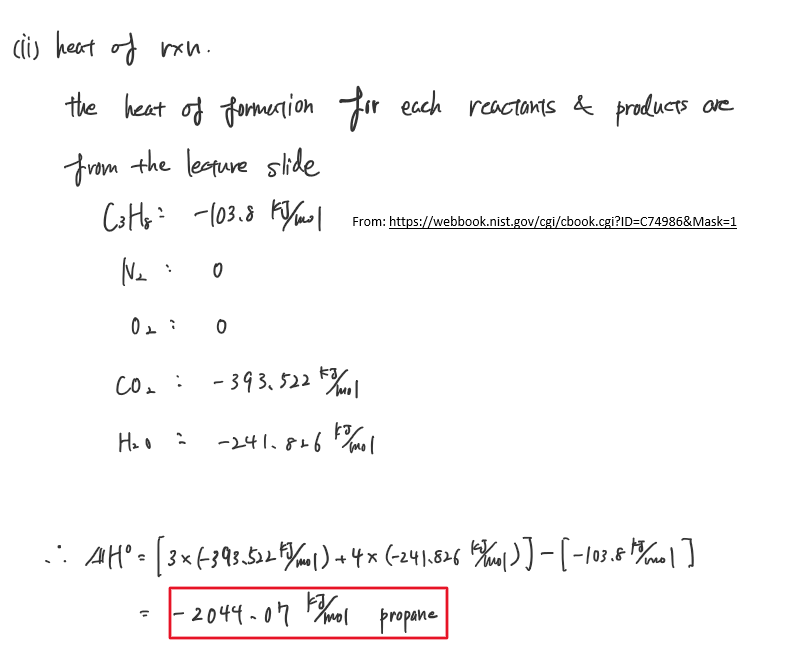 (ii) heat of rxn.
the heat of formation for each reactants & products are
from the lecture slide
C₃H₈ : -103.8 kJ/mol From: https://webbook.nist.gov/cgi/cbook.cgi?ID=C74986&Mask=1
N₂ : 0
O₂ : 0
CO₂ : -393.522 kJ/mol
H₂O : -241.826 kJ/mol
∴ ΔH° = [3×(-393.522 kJ/mol) + 4×(-241.826 kJ/mol)] - [-103.8 kJ/mol]
= -2044.07 kJ/mol propane